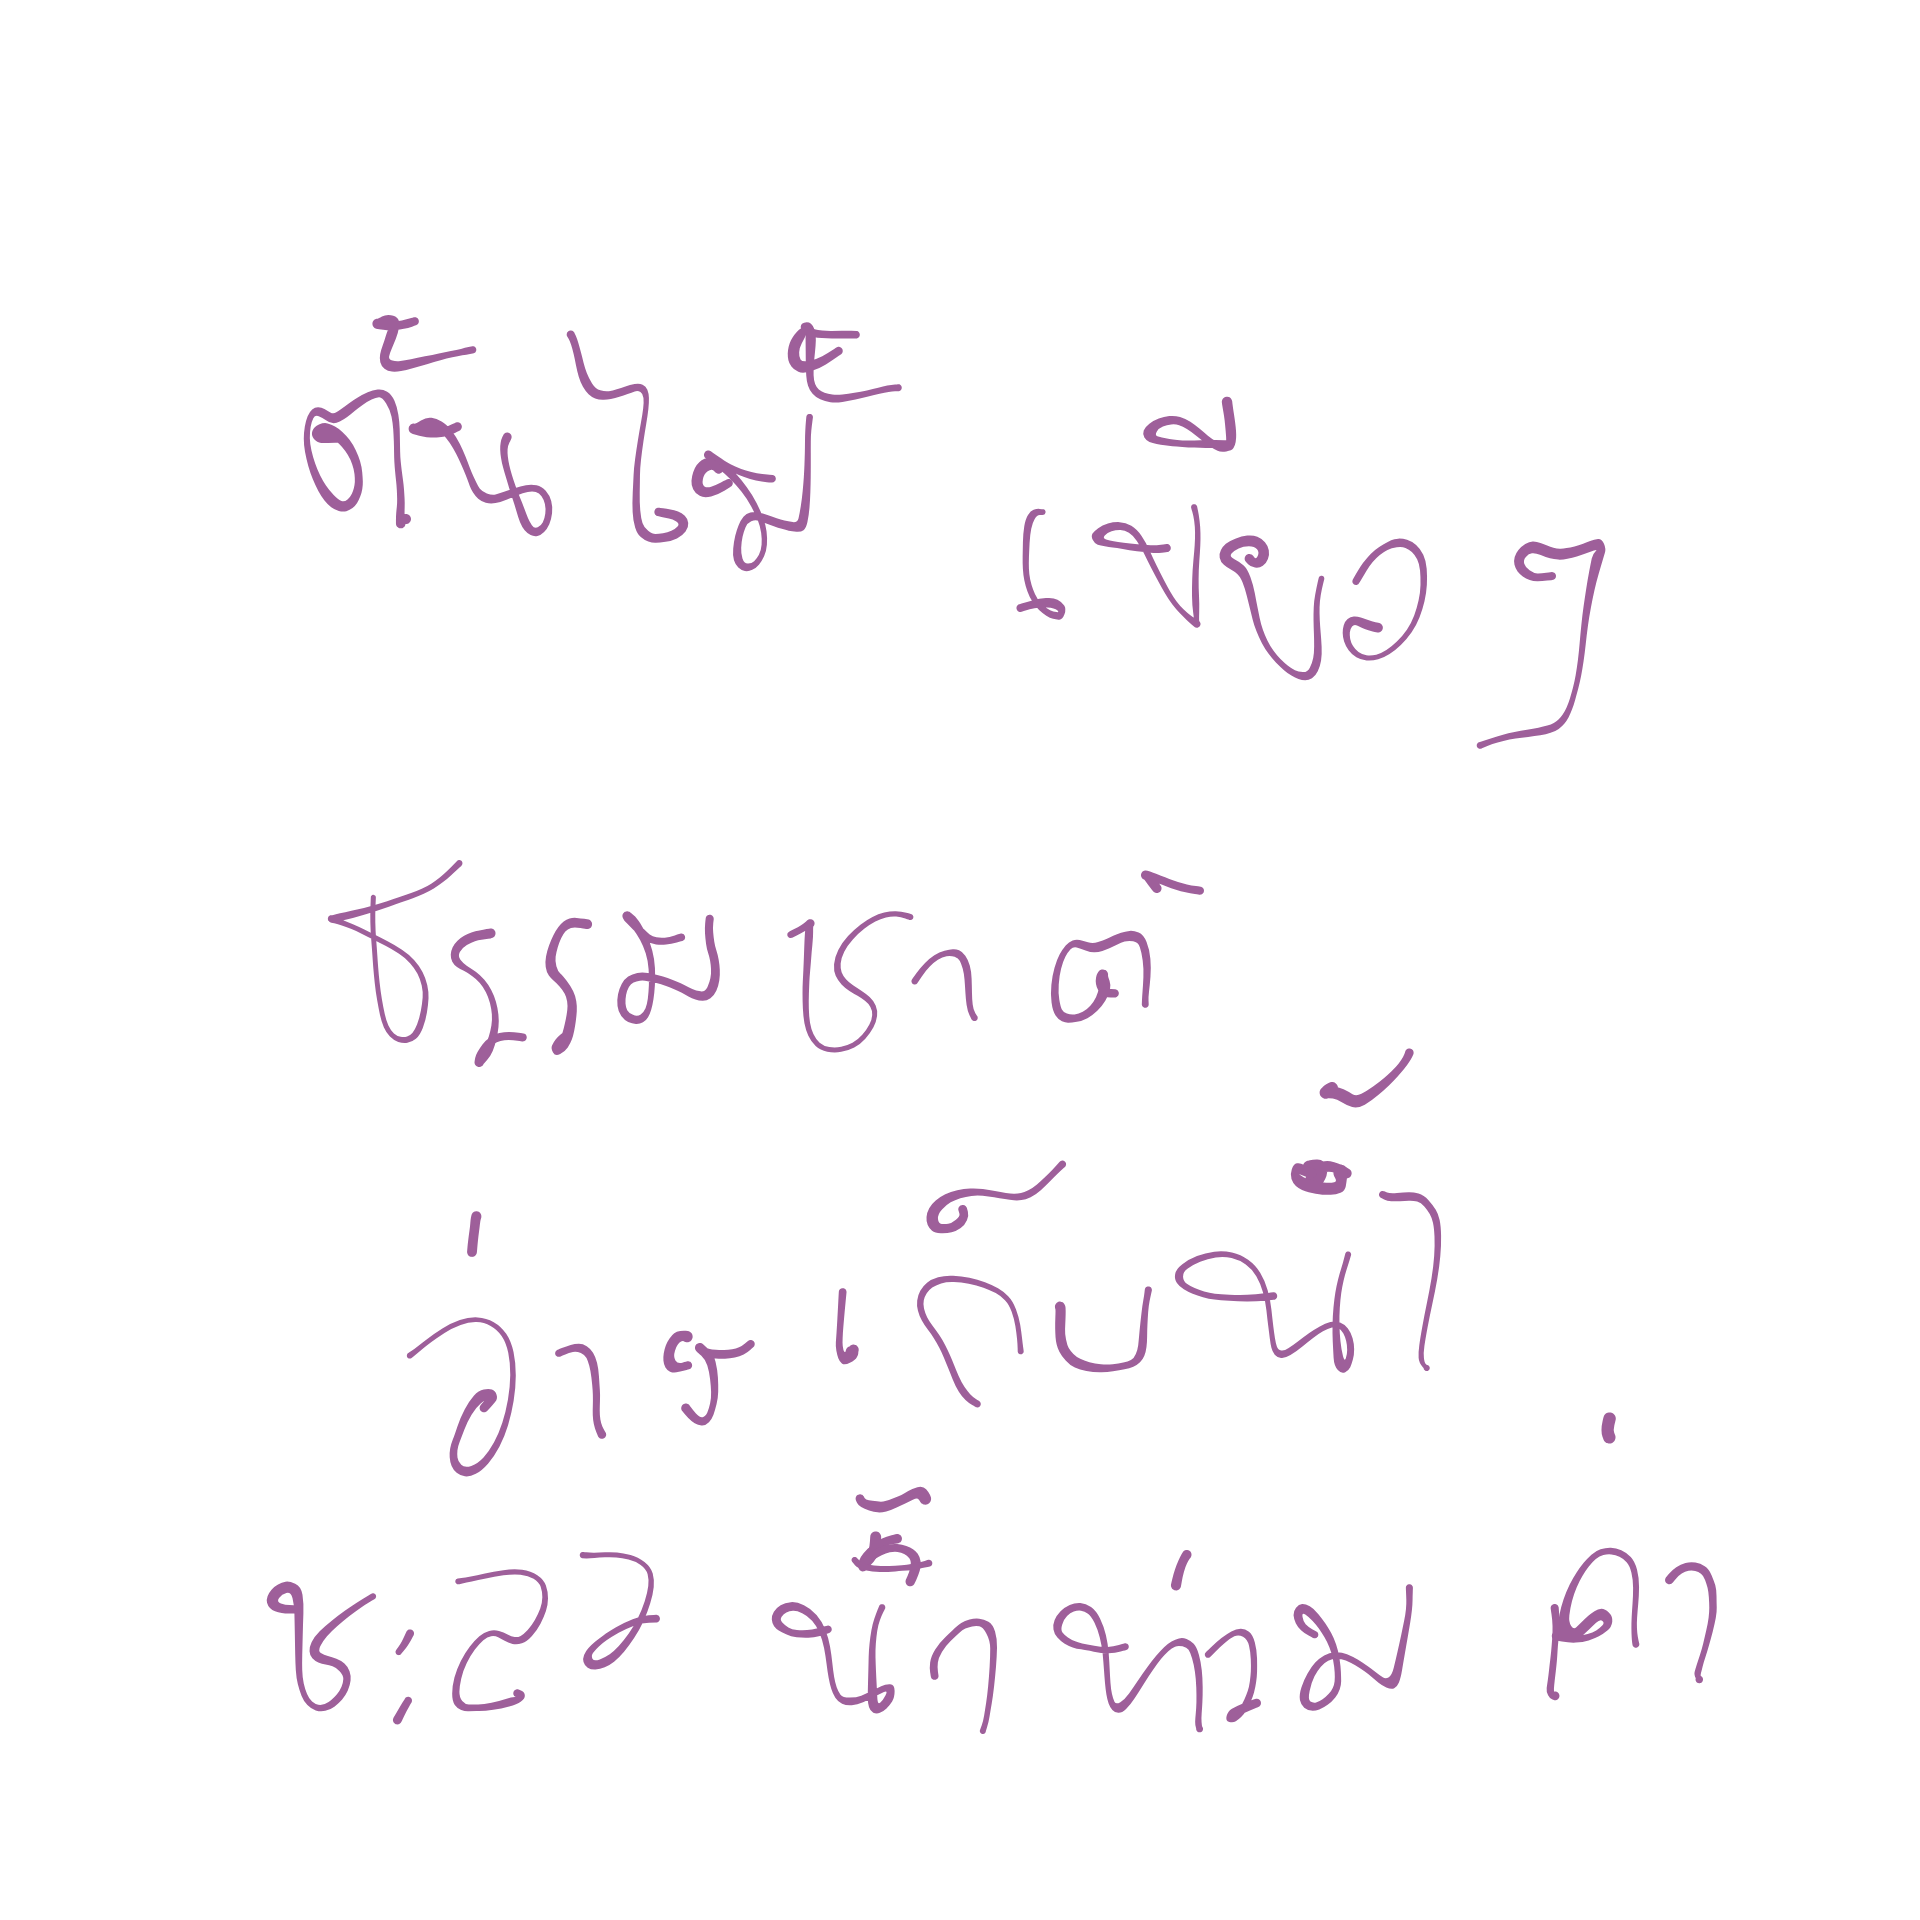 ต้นไม้ เขียว ๆ
ธรรมชาติ
อ่างเก็บน้ำ
ชะลอ น้ำท่วม ค่า